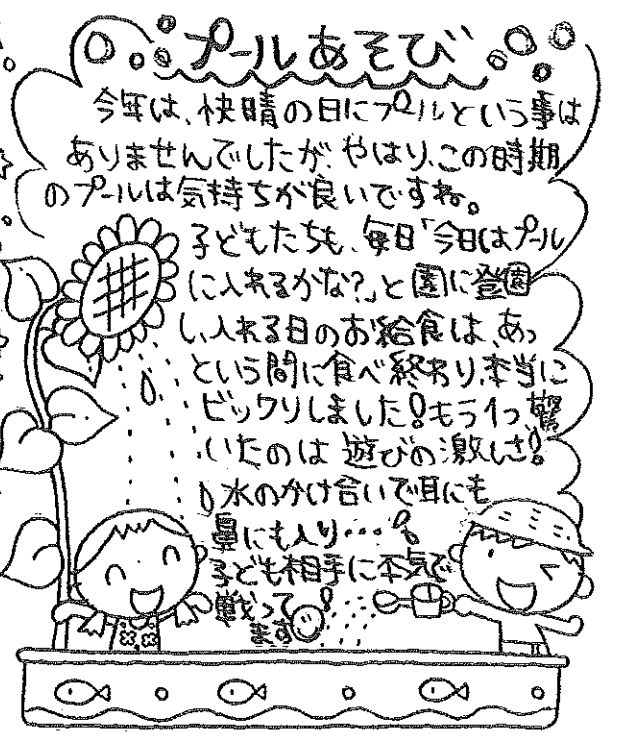 プールあそび
今年は、快晴の日にプールという事は
ありませんでしたが、やはり、この時期
のプールは気持ちが良いですね。
子どもたちも、毎日「今日はプール
に入れるかな?」と園に登園
し、入れる日のお給食は、あっ
という間に食べ終わり、本当に
ビックリしました!もう1つ、驚
いたのは遊びの激しさ!
水のかけ合いで耳にも
鼻にも入り…!
子ども相手に本気で
戦って
ます!